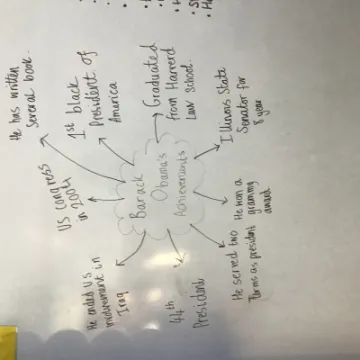 Barack
Obama's
Achievements
He has written
Several book.
1st black
President of
America
Graduated
from Harverd
Law School.
Illinois State
Senator for
8 year
He won a
grammy
award
He served two
Terms as president
44th
President
He ended US
involvement in
Iraq
US congress
in 2004